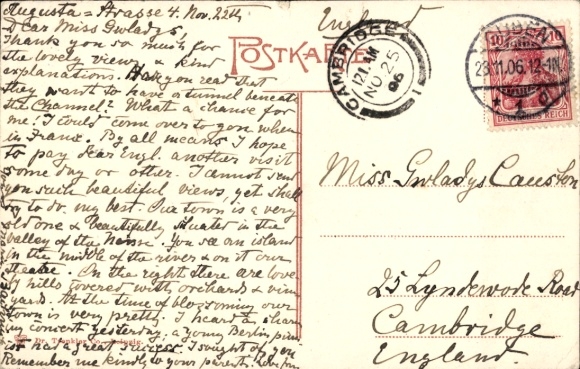 Augusta-Strasse 4. Nov. 22th
Dear Miss Gwladys,
Thank you so much for
the lovely views & kind
explanations. Have you read that
they want to have a tunnel beneath
the Channel? What a chance for
me! I could come over to you when
in France. By all means I hope
to pay dear Engl. another visit
some day or other. I cannot send
you such beautiful views, yet shall
try to do my best. Our town is a very
old one & beautifully situated in the
valley of the You see an island
in the middle of the river & on it our
theatre. On the right there are love
ly hills covered with orchards & vine
yards. At the time of blossoming our
town is very pretty. I heard a charm
ing concert yesterday, a young Berlin
ist had a great success. I thought of you
Remember me kindly to your parents. Love from
England
POSTKARTE
CAMBRIDGE
12 AM
NO 25
06
1
23.11.06.12-1N
* 1 g
10 10
DEUTSCHES REICH
Miss Gwladys
25 Lyndewode Road
Cambridge
England.
Dr. Trenkler Co., Leipzig.